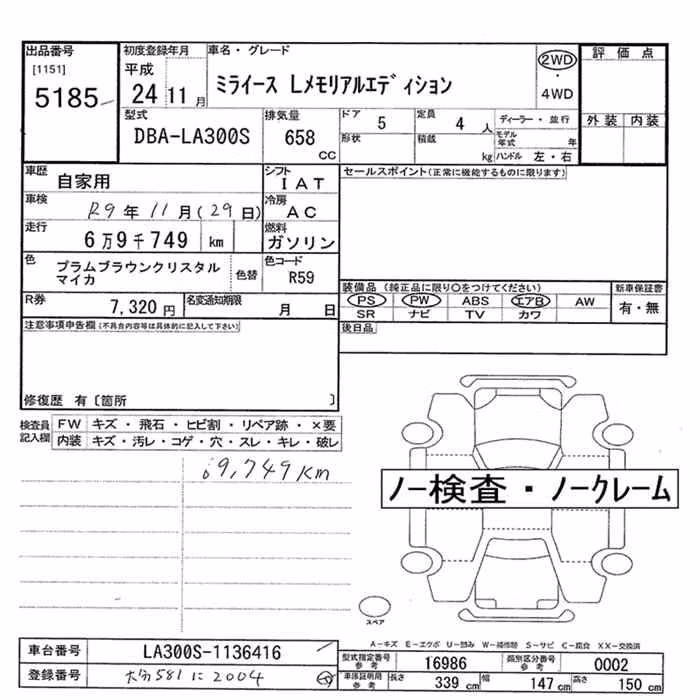 出品番号 初度登録年月 車名・グレード 評価点
[1151] 平成 ミライース Lメモリアルエディション 2WD
5185 24 11月 ・
4WD
型式 排気量 ドア 5 定員 4人 ディーラー・並行 外装 内装
DBA-LA300S 658 cc 形状 積載 kg モデル年式 年
ハンドル 左・右
車歴 自家用 シフト IAT セールスポイント(正常に機能するものに限ります)
車検 R9年11月(29日) 冷房 AC
走行 6万9千749 km 燃料 ガソリン
色 プラムブラウンクリスタル 色替 色コード R59
マイカ
装備品(純正品に限り○をつけてください) 新車保証書
R券 7,320円 名変通知期限 月 日 PS PW ABS エアB AW 有・無
SR ナビ TV カワ
注意事項申告欄(不具合内容等は具体的に記入して下さい) 後日品
修復歴 有〔箇所 〕
検査員記入欄 FW キズ・飛石・ヒビ割・リペア跡・×要
内装 キズ・汚レ・コゲ・穴・スレ・キレ・破レ
69,749km
ノー検査・ノークレーム
スペア
A-キズ E-エクボ U-凹み W-補修跡 S-サビ C-腐食 XX-交換済
車台番号 LA300S-1136416 型式指定番号参考 16986 類別区分番号参考 0002
登録番号 581 に 2004 車庫証明用参考 長さ 339cm 幅 147cm 高さ 150cm